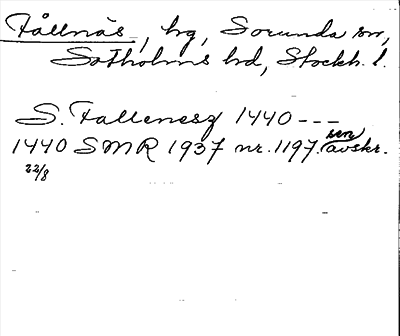 Fållnäs, hg, Sorunda sn,
Sotholms hd, Stockh. l.
S. Fallenesz 1440 ---
1440 SMR 1937 nr. 1197. (sen avskr.
22/8